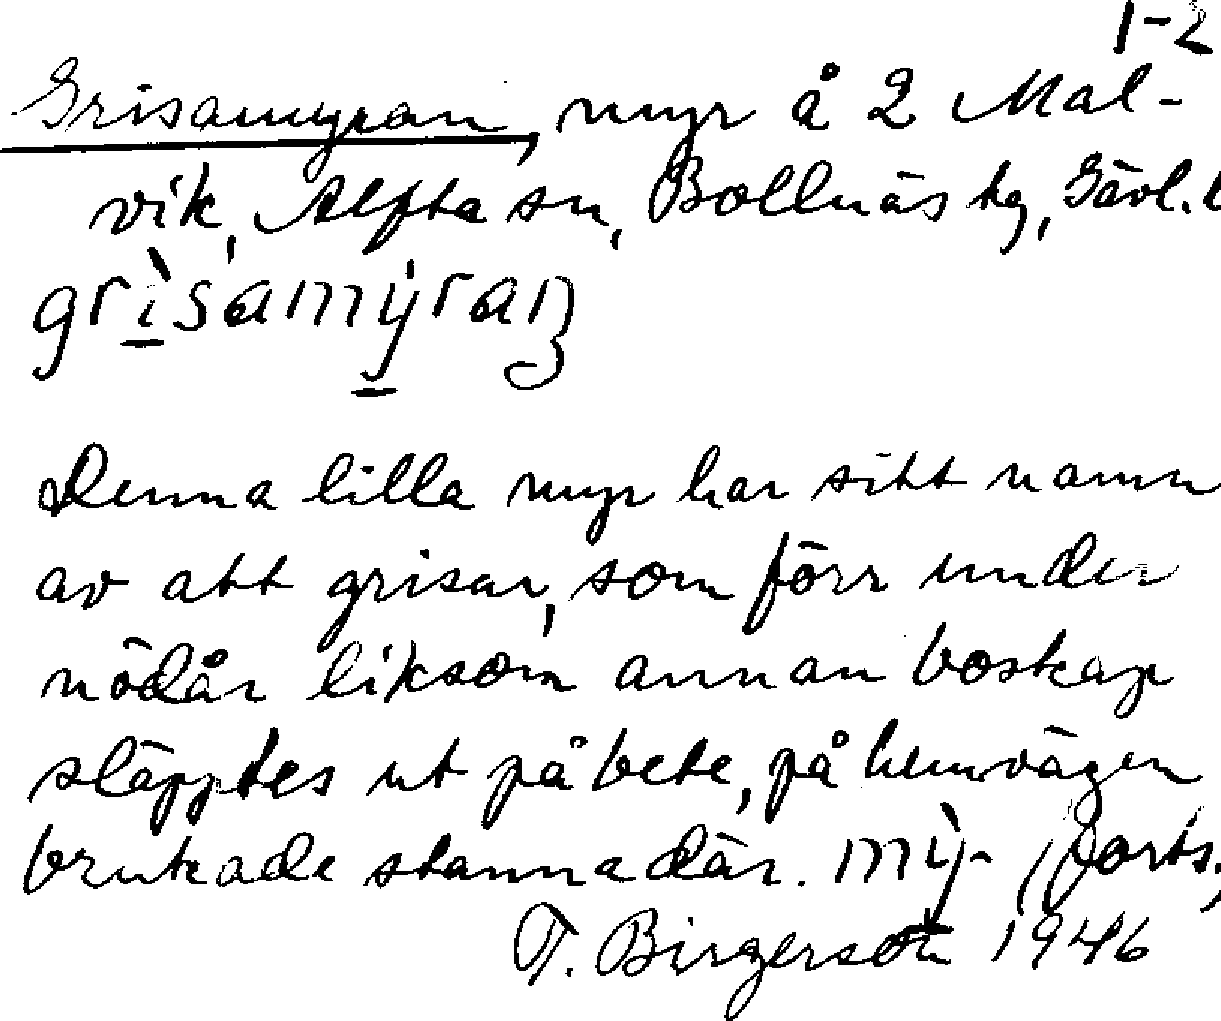 1-2
Grisamyran, myr å 2 Mal-
vik, Alfta sn, Bollnäs tg, Gävl. l
grìsamýraŋ
Denna lilla myr har sitt namn
av att grisar, som förr under
nödår liksom annan boskap
släpptes ut på bete, på hemvägen
brukade stanna där. mỳ- (forts.)
T. Birgerson 1946